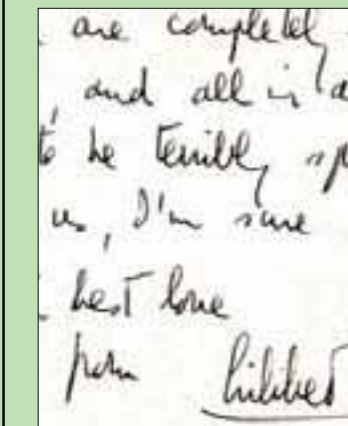 are completely
, and all in a
to be terribly sp
us, I'm sure
best love
from